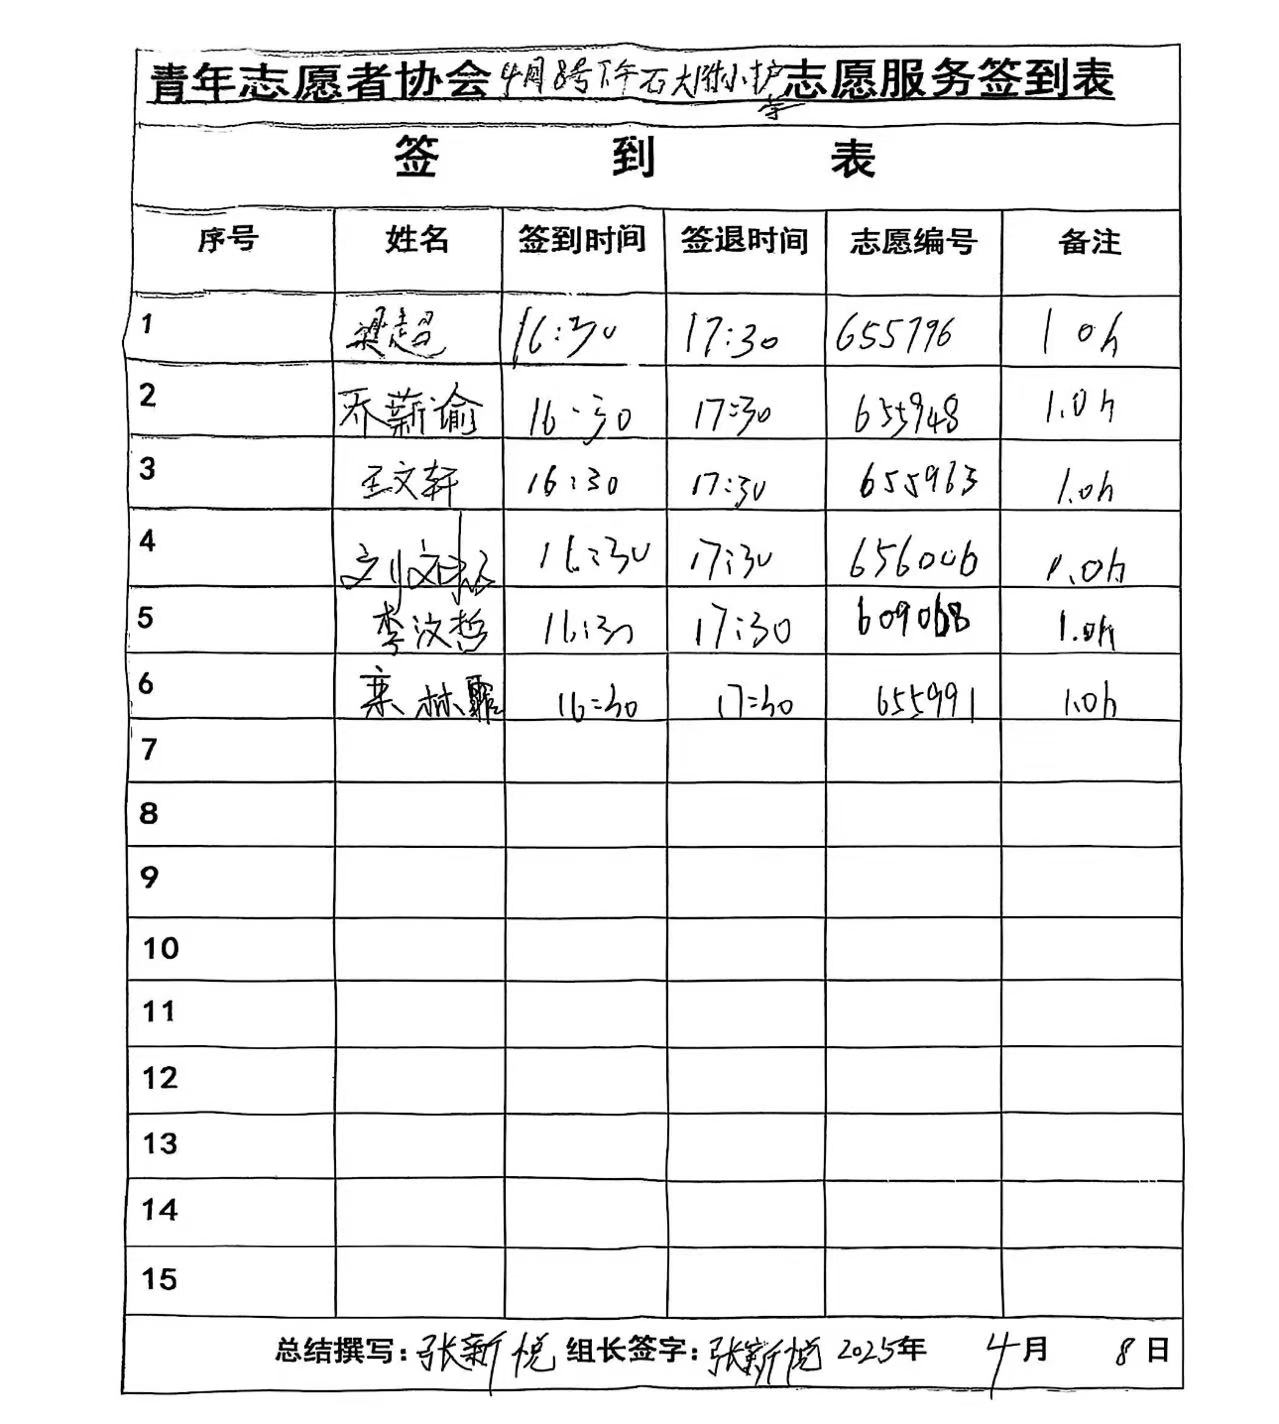 青年志愿者协会4月8号下午石大附小护学志愿服务签到表
签 到 表
序号 姓名 签到时间 签退时间 志愿编号 备注
1 梁超 16:30 17:30 655796 1.0h
2 乔薪谕 16:30 17:30 655948 1.0h
3 王文轩 16:30 17:30 655963 1.0h
4 刘文 16:30 17:30 656006 1.0h
5 李汶哲 16:30 17:30 609068 1.0h
6 栾林霏 16:30 17:30 655991 1.0h
7
8
9
10
11
12
13
14
15
总结撰写:张新悦 组长签字:张新悦 2025年 4月 8日